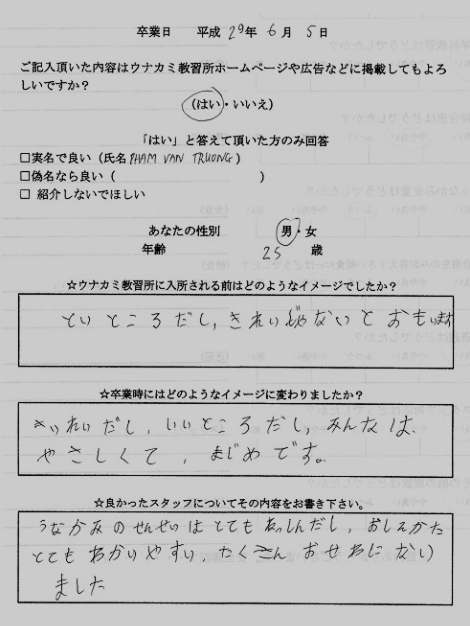 卒業日 平成 29年 6月 5日
ご記入頂いた内容はウナカミ教習所ホームページや広告などに掲載してもよろ
しいですか？
（はい・いいえ）
「はい」と答えて頂いた方のみ回答
□実名で良い（氏名 PHAM VAN TRUONG）
□偽名なら良い（ ）
□ 紹介しないでほしい
あなたの性別 男・女
年齢 25 歳
☆ウナカミ教習所に入所される前はどのようなイメージでしたか？
といところだし,きれいぢゃないとおもいます
☆卒業時にはどのようなイメージに変わりましたか？
きれいだし,いいところだし,みんなは
やさしくて,まじめです。
☆良かったスタッフについてその内容をお書き下さい。
うなかみのせんせいはとても しんだし,おしえかた
とてもわかいやすい,たくさんおせわにない
ました